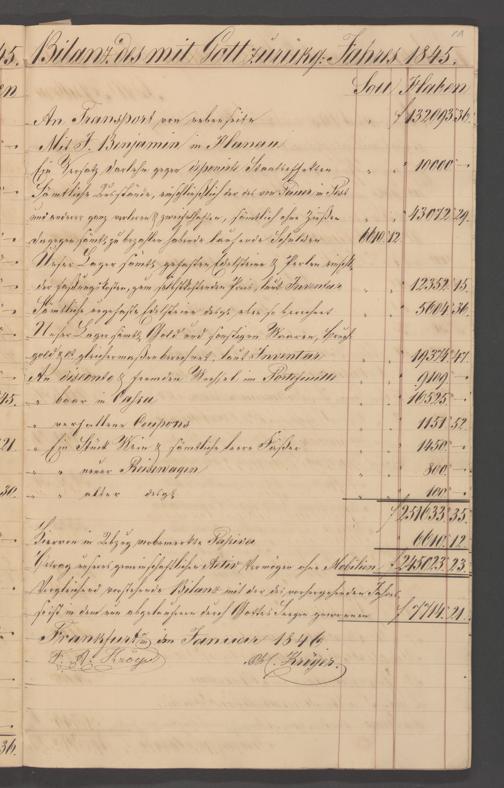 Bilanz des mit Gott zurückg. Jahres 1845.
Soll Haben
An Transport von nebenseite f 132093 36.
Mit J. Benjamin in Hanau
Ein Versatz Darlehn gegen Staatseffekten 10000 —
Sämtliche Ausstände, einschließlich der
und anderer ganz verloren & zweifelhaften, sämtlich ohne Zinsen 43072 29.
dagegen sämtl. zu bezahlen habende laufende Schulden 6610 12
Unser Lager sämtl. gefassten Edelsteine & Perlen
laut Inventar 12352 15.
Sämtliche ungefasste Edelsteine desgl. 5604 36.
Unser Lager sämtl. Gold und sonstigen Waaren, Bruch
gold & gleichermaßen berechnet, laut Inventar 19374 47
An disconto & fremden Wechsel im Portefeuille 9109 —
" baar in Cassa 16525 —
" verfallene Coupons 1151 52
" Ein Stück Wein & sämtliche leere Fässer 1450 —
" " neuer Reisewagen 800 —
" " alter desgl. 100 —
f 251633 35.
Hiervon in Abzug vorbemerkte Passiva 6610 12
Betrag unseres gemeinschaftlichen Activ Vermögen ohne Mobilien f 245023 23
Vergleichend vorstehende Bilanz mit der des vorhergehenden Jahres,
so ist in dem nun abgelaufenen durch Gottes Segen gewonnen f 7714 21.
Frankfurt a/m den Januar 1846